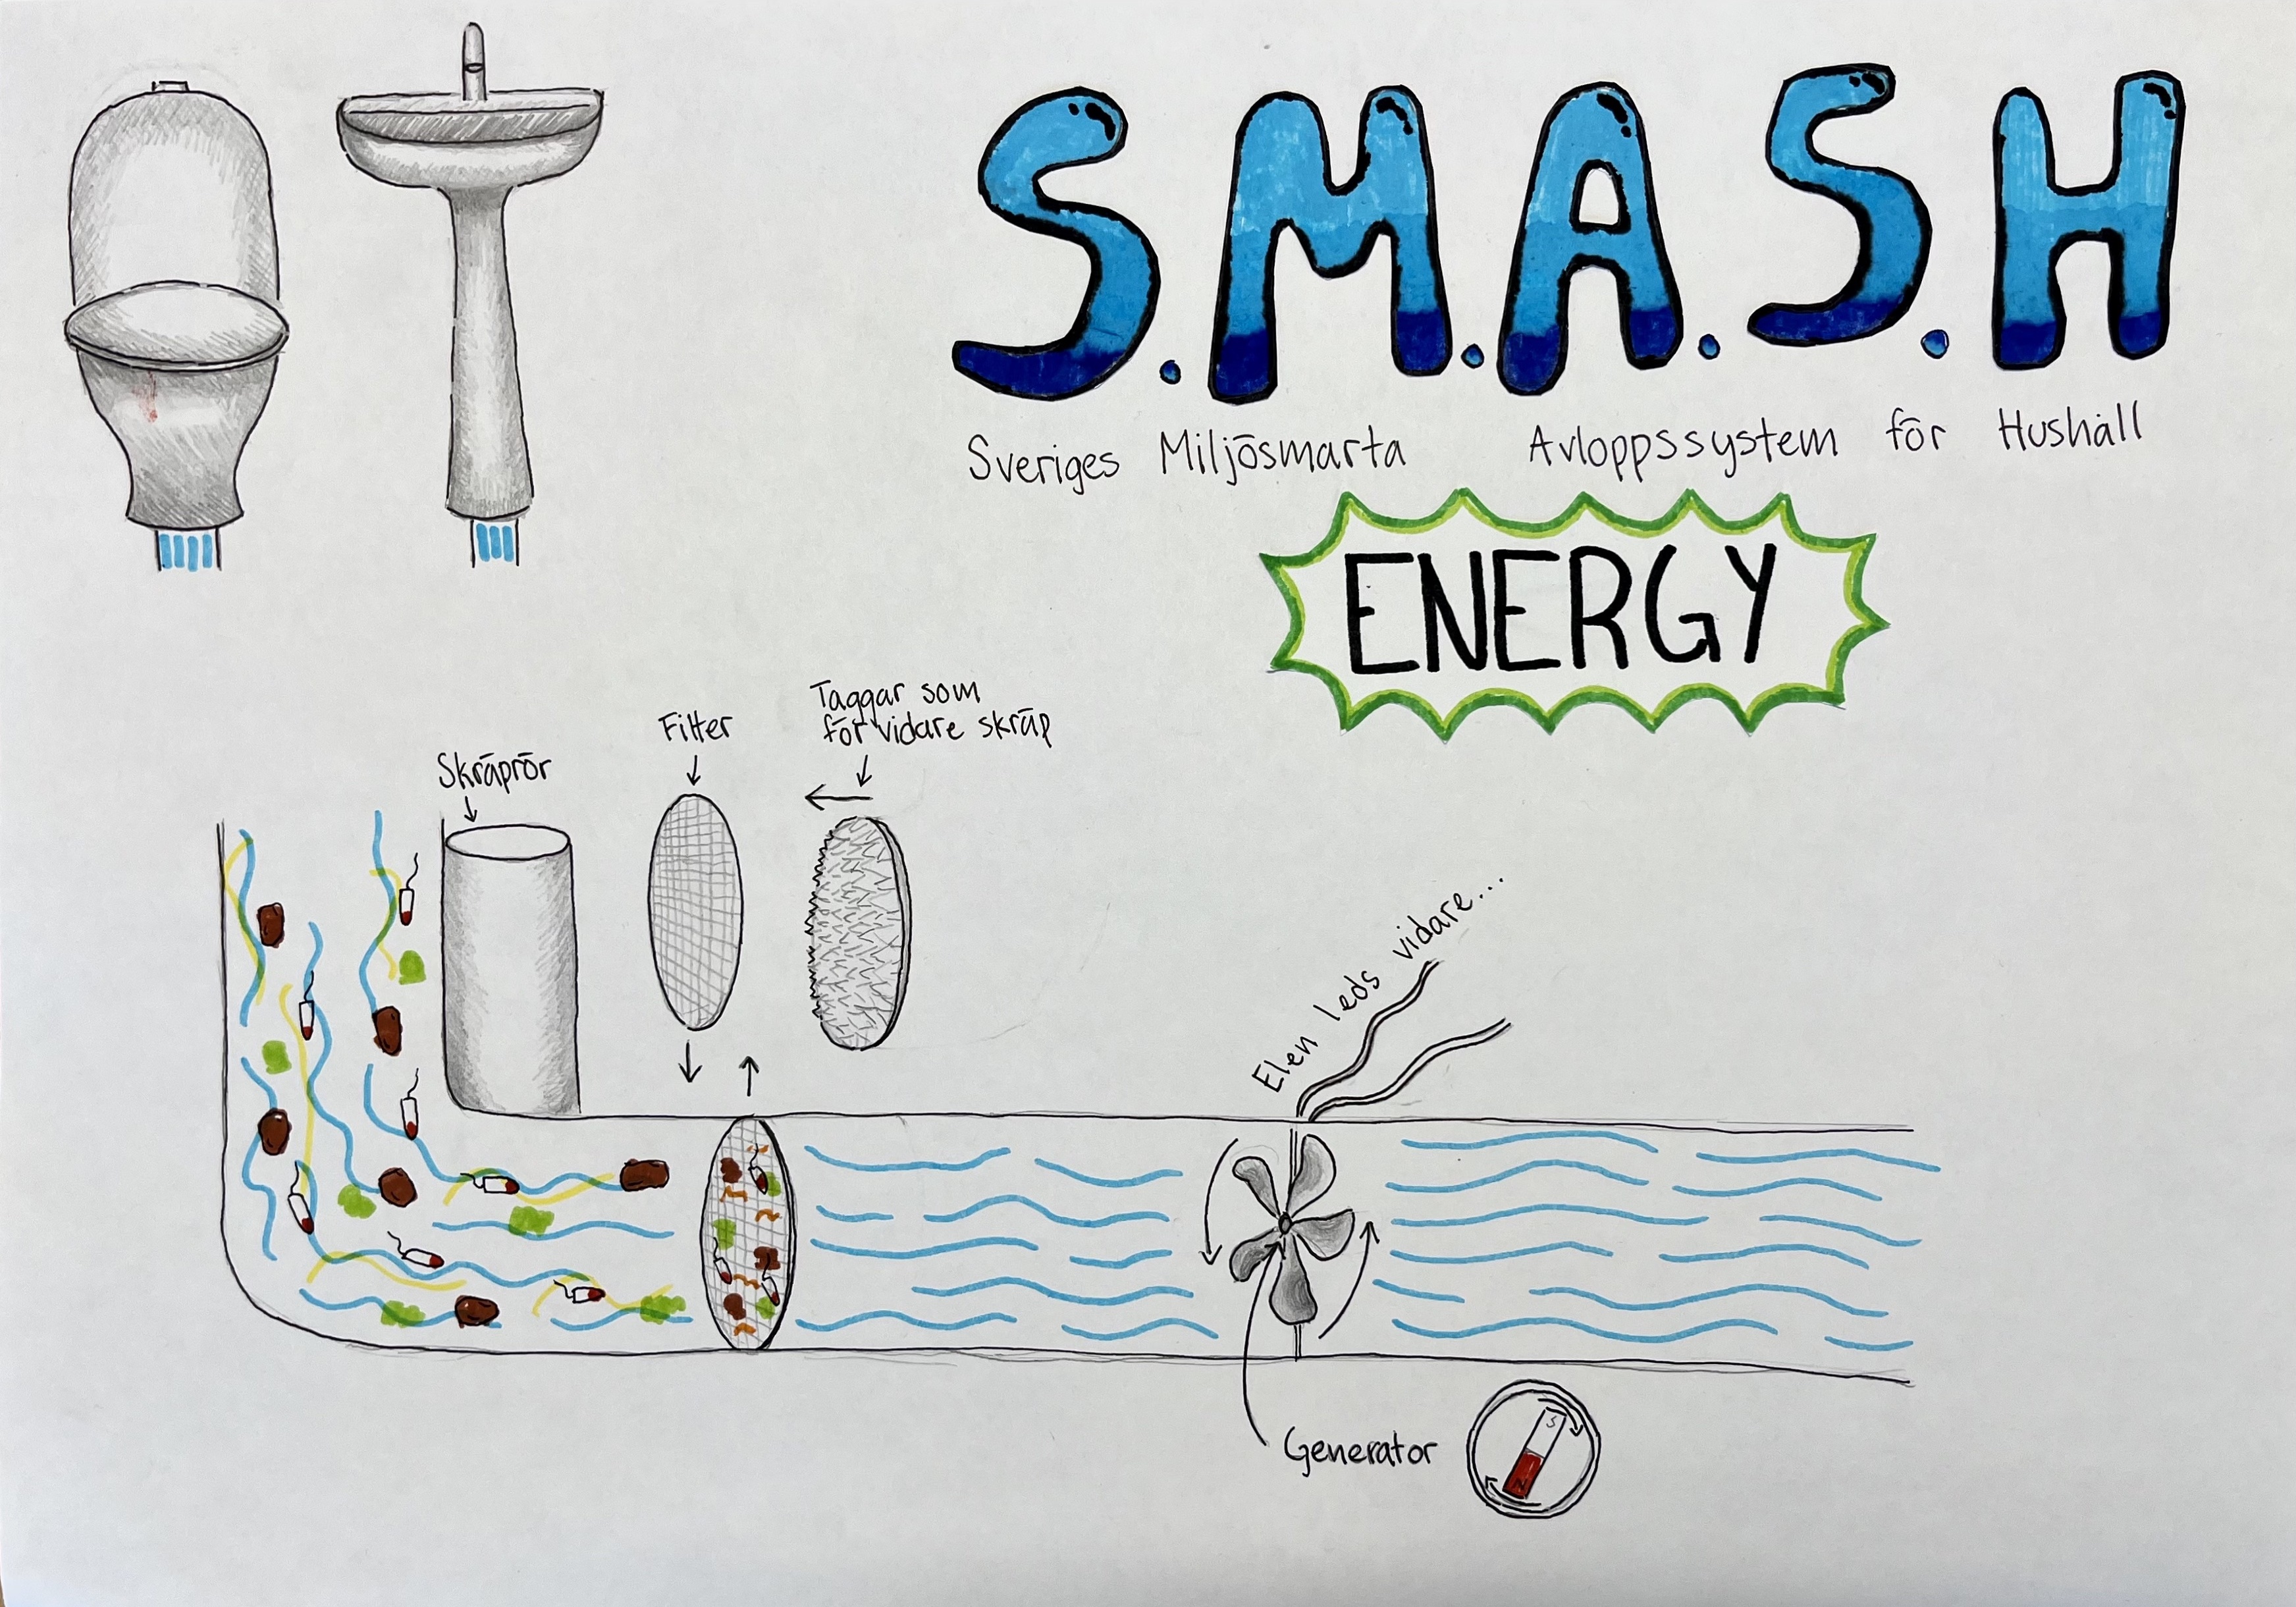 S.M.A.S.H
Sveriges Miljösmarta Avloppssystem för Hushåll
ENERGY
Taggar som
för vidare skräp
Filter
Skräprör
Elen leds vidare...
Generator
S
N